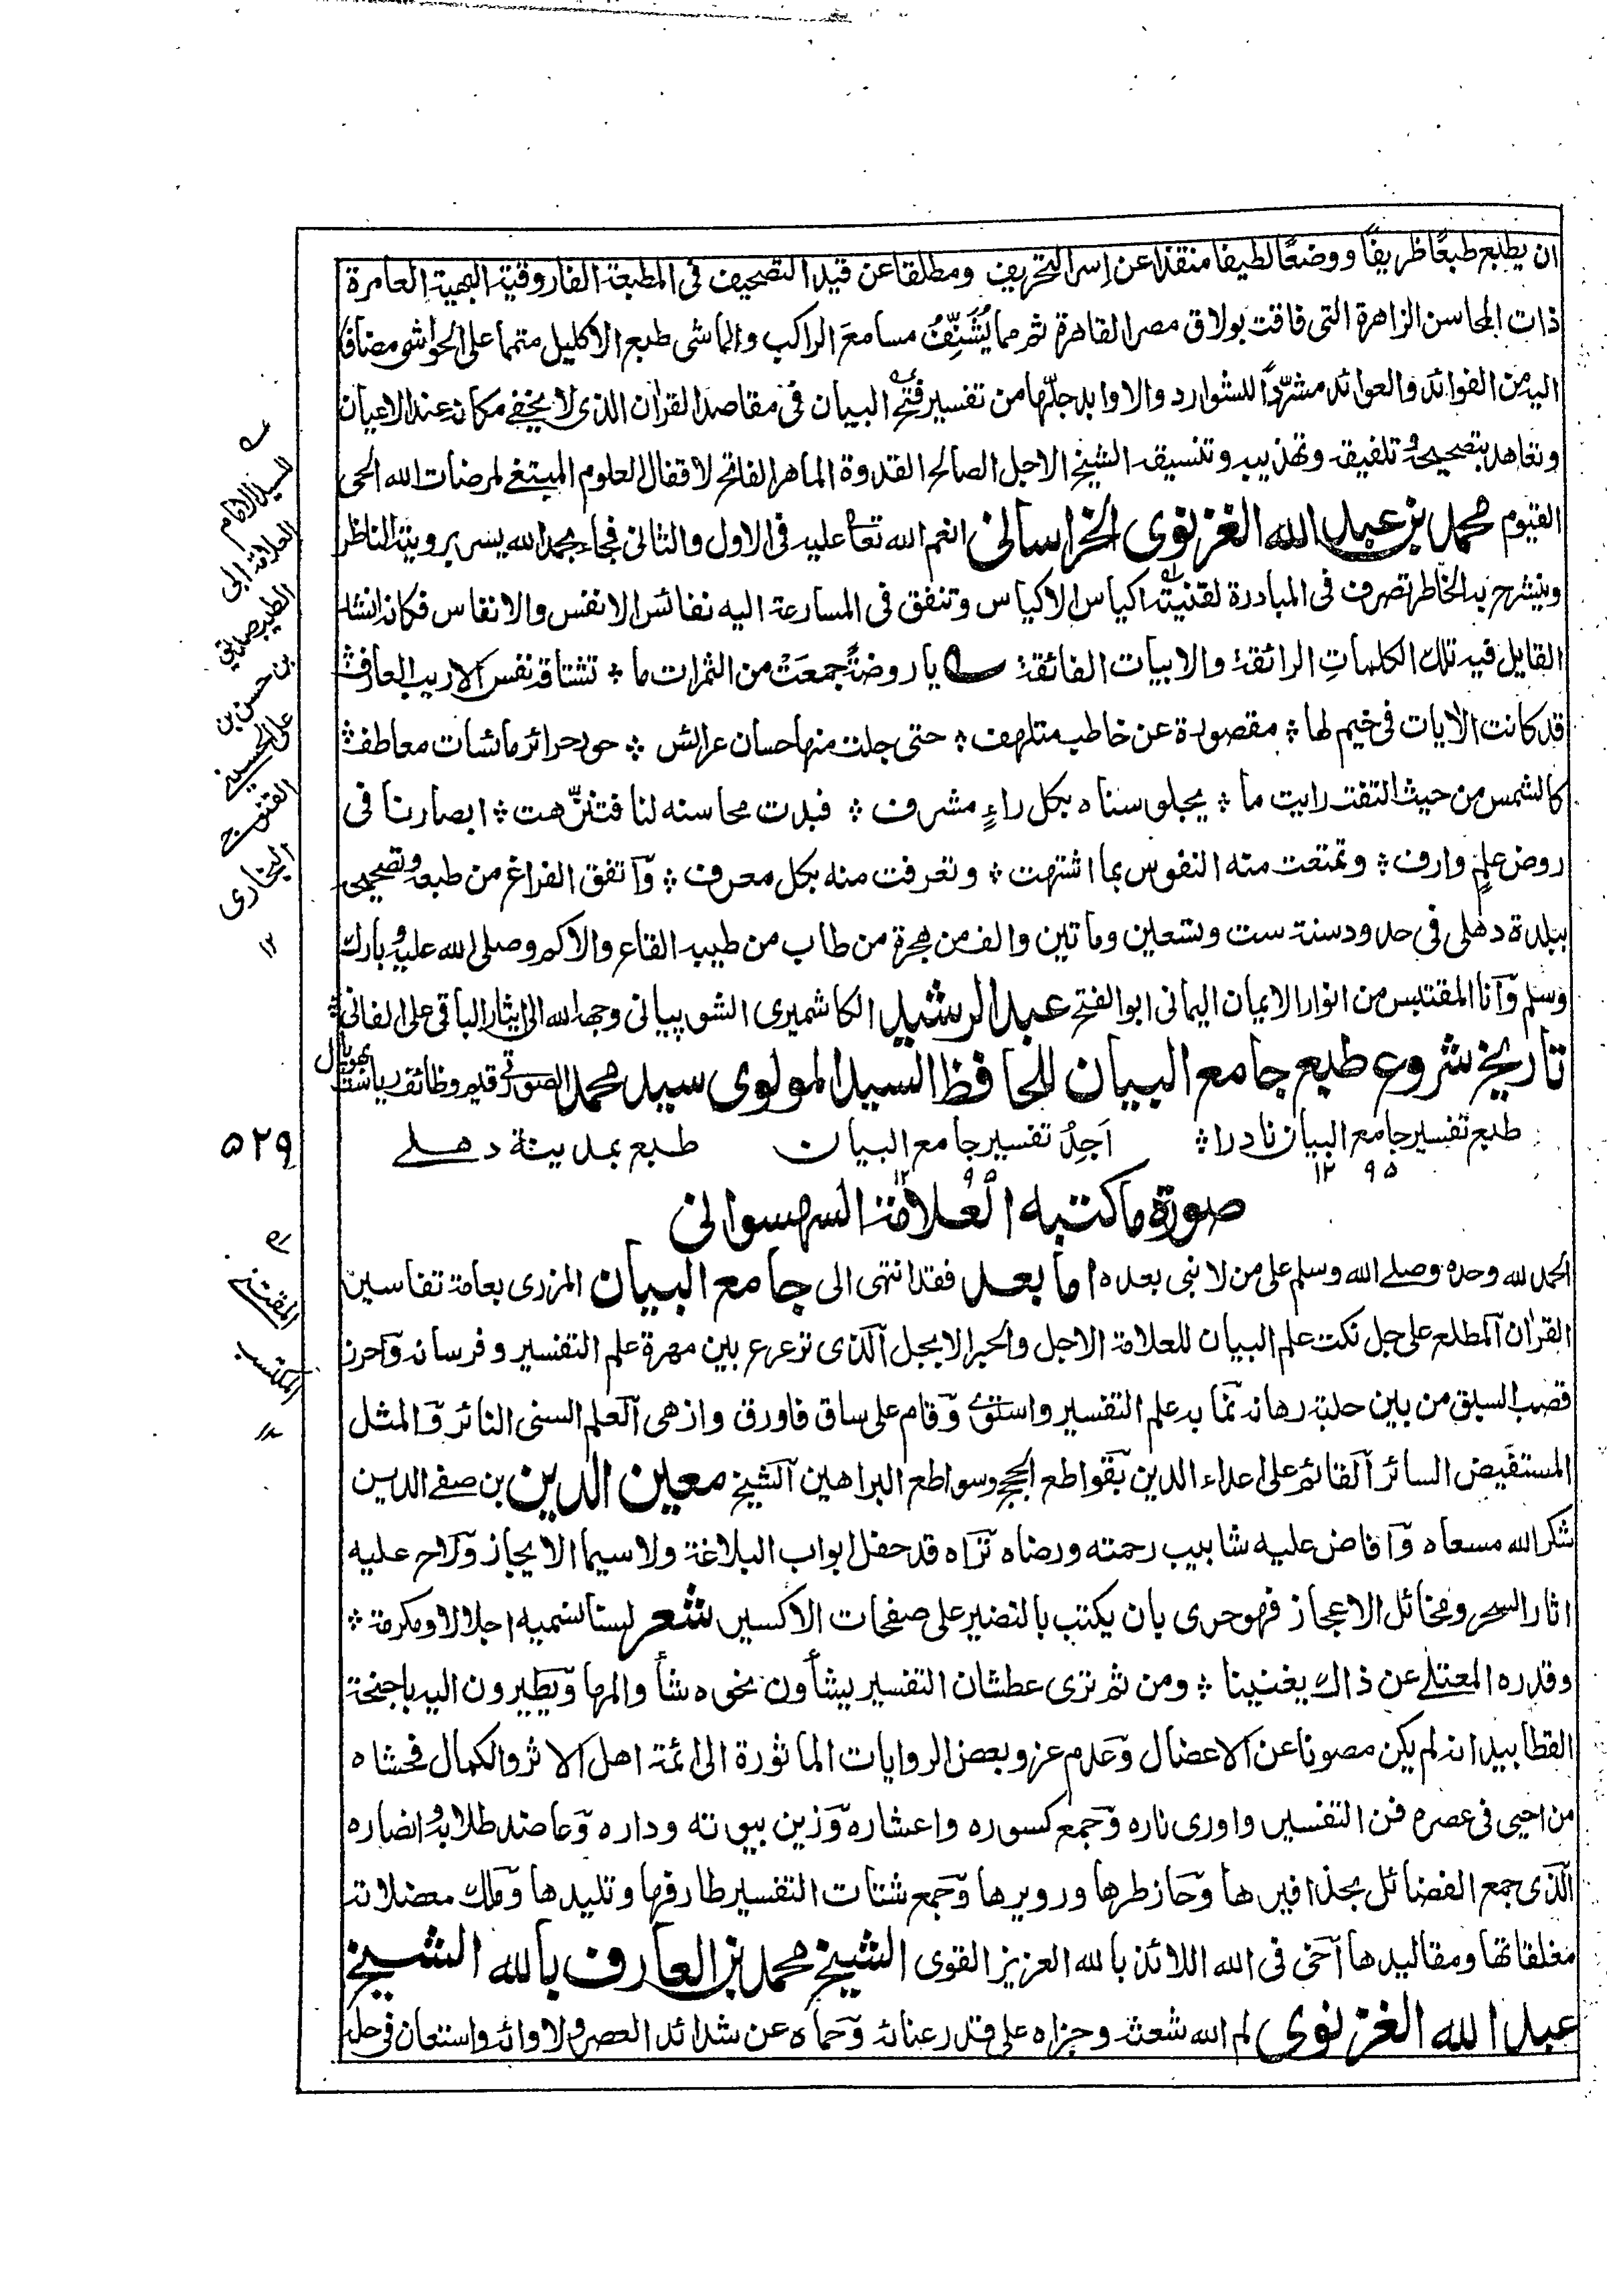 ان يطبع طبعًا ظريفًا ووضعًا لطيفا منقذا عن إسر التحريف ومطلقا عن قيد التصحيف فى المطبعة الفاروقية البهية العامرة
ذات المحاسن الزاهرة التى فاقت بولاق مصر القاهرة ثم مما يُشَنِّفُ مسامعَ الراكب والماشى طبع الاكليل متهما على الحواشى مضافا
اليه من الفوائد والعوائد مشرّدًا للشوارد والاوابد جلّها من تفسير فتح البيان فى مقاصد القران الذى لا يخفے مكانه عند الاعيان
وتعاهد بتصحيحه وتلفيقه وتهذيبه وتنسيقه الشيخ الاجل الصالح القدوة الماهر الفاتح لاقفال العلوم المبتغے لمرضات الله الحى
القيوم محمد بن عبد الله الغزنوى الخراسانى انعم الله تعا عليه فى الاول والثانى فجاء بحمد الله يسر برويته الناظر
وينشرح به الخاطر تصرف فى المبادرة لقنيته اكياس الاكياس وتنفق فى المسارعة اليه نفائس الانفس والانفاس فكانه انشد
القايل فيه تلك الكلمات الرائقة والابيات الفائقة يا روضةً جمعَتْ من الثمرات ما ؞ تشتاقه نفس الاريب العارف ؞
قد كانت الايات فى خيم لها ؞ مقصورة عن خاطب متلهف ؞ حتى جلت منها حسان عرائس ؞ حور حرائر مائسات معاطف ؞
كالشمس من حيث التفت رايت ما ؞ يجلو سناه بكل راءٍ مشرف ؞ فبدت محاسنه لنا فتنزّهت ؞ ابصارنا فى
روض علمٍ وارف ؞ وتمتعت منه النفوس بما اشتهت ؞ وتعرفت منه بكل معرف ؞ وآتفق الفراغ من طبعه وتصحيحه
ببلدة دهلى فى حدود سنة ست وتسعين وماتين والف من هجرة من طاب من طيبه القاع والاكم وصلى الله عليه وبارك
وسلم وآنا المقتبس من انوار الايمان اليمانى ابو الفتح عبد الرشيد الكاشميرى الشوپيانى وجهه الله الى ايثار الباقى على الفانى ؞
تاريخ شروع طبع جامع البيان للحافظ السيد المولوى سيد محمد الصوتے رقيم وظائف رياست بهوپال
طبع تفسير جامع البيان نادرا ؞ اَجِدُ تفسير جامع البيان طبع بمدينة دهلے
١٢٩٥
١٢٩٥
صورة ما كتبه العلامة السهسوانى
الحمد لله وحده وصلے الله وسلم على من لا نبى بعده اما بعد فقد انتهى الى جامع البيان المزرى بعامة تفاسير
القران المطلع على جل نكت علم البيان للعلامة الاجل والحبر الابجل الذى ترعرع بين مهرة علم التفسير وفرسانه وآحرز
قصب السبق من بين حلبة رهانه نما به علم التفسير واستوے وقام على ساق فاورق وازهى العلم السنى النائر والمثل
المستفيض السائر القائم على اعداء الدين بقواطع الحجج وسواطع البراهين الشيخ معين الدين بن صفے الدين
شكر الله مسعاه وآفاض عليه شابيب رحمته ورضاه تراه قد حفل ابواب البلاغة ولا سيما الايجاز ولاح عليه
اثار السحر ومخائل الاعجاز فهو حرى بان يكتب بالنضير على صفحات الاكسير شعر لسنا نسميه اجلالا ومكرمة ؞
وقدره المعتلے عن ذاك يغنينا ؞ ومن ثم ترى عطشان التفسير يشأون نحوه شأ والمها ويطيرون اليه باجنحة
القطا بيد انه لم يكن مصونا عن الاعضال وعدم عزو بعض الروايات الماثورة الى ائمة اهل الاثر والكمال فحشاه
من احيى فى عصره فن التفسير واورى ناره وجمع كسوره واعشاره وزين بيوته وداره وعاضد طلابه وانصاره
الذى جمع الفضائل بحذافيرها وحاز طرها وروبرها وجمع شتات التفسير طارفها وتليدها وملك معضلاته
مغلقاتها ومقاليدها آخى فى الله اللائذ بالله العزيز القوى الشيخ محمد بن العارف بالله الشيخ
عبد الله الغزنوى لم الله شعثه وجزاه على قدر عنائه وحماه عن شدائد العصر ولاوائه واستعان فى حله
للسيد الامام
العلامة ابى
الطيب صديق
بن حسن بن
على الحسينے
القنوجى
البخارى
١٢
٥٢٩
المقتنے
المكتسب
١٢